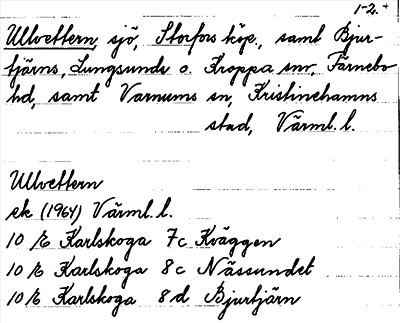 1-2.+
Ullvettern, sjö, Storfors köp., samt Bjur-
tjärns, Lungsunds o. Kroppa snr, Färnebo
hd, samt Varnums sn, Kristinehamns
stad, Värml. l.
Ullvettern
ek (1964) Värml. l.
10 E Karlskoga 7c Kväggen
10 E Karlskoga 8c Nässundet
10 E Karlskoga 8d Bjurtjärn